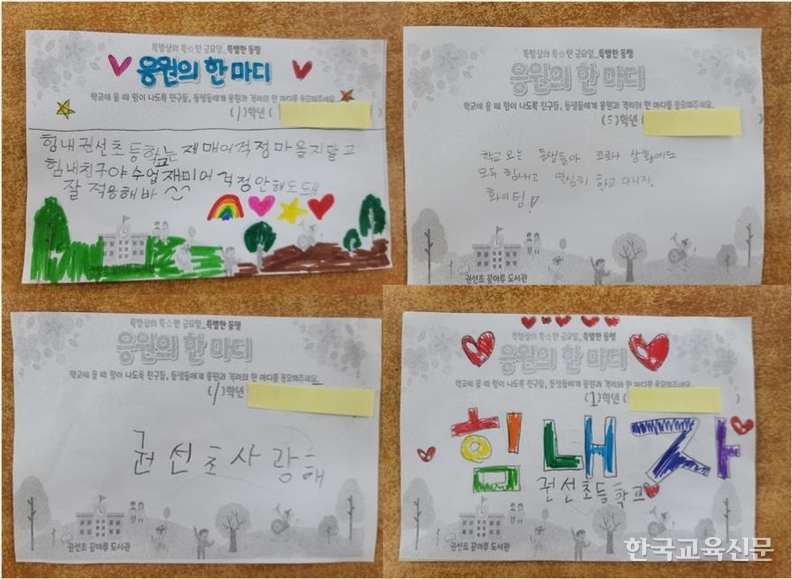 금요일_특별한
응원의 한 마디
학교에 올 때 힘이 나도록 친구들, 동생들에게 응원과 격려의 한 마디를 해주세요.
(1)학년 (
힘내 권선초등학교는 재매이 걱정 마 울지 말고
힘내 친구야 수업 재미어 걱정 안해도 돼
잘 적응해바
금요일_특별한
응원의 한 마디
학교에 올 때 힘이 나도록 친구들, 동생들에게 응원과 격려의 한 마디를 해주세요.
(5)학년 (
학교 오는 동생들아 코로나 상황에도
모두 힘내고 열심히 학교 다니자.
화이팅!
권선초 꿈마루 도서관
금요일_특별한
응원의 한 마디
학교에 올 때 힘이 나도록 친구들, 동생들에게 응원과 격려의 한 마디를 해주세요.
(1)학년
권선초 사랑해
권선초 꿈마루 도서관
금요일_특별한
응원의 한 마디
학교에 올 때 힘이 나도록 친구들, 동생들에게 응원과 격려의 한 마디를 해주세요.
(1)학년 (
힘내자
권선초등학교
권선초 꿈마루 도서관
한국교육신문